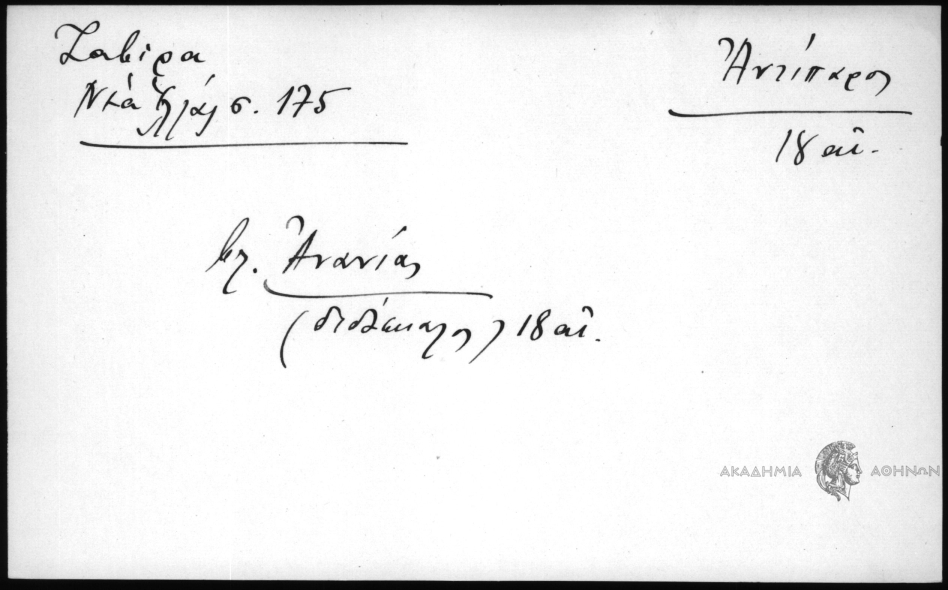 Ζαβίρα
Νέα Ἑλλάς σ. 175
Ἀντίπαρος
18 αἰ.
βλ. Ἀνανίας
(διδάσκαλος) 18 αἰ.
ΑΚΑΔΗΜΙΑ ΑΘΗΝΩΝ